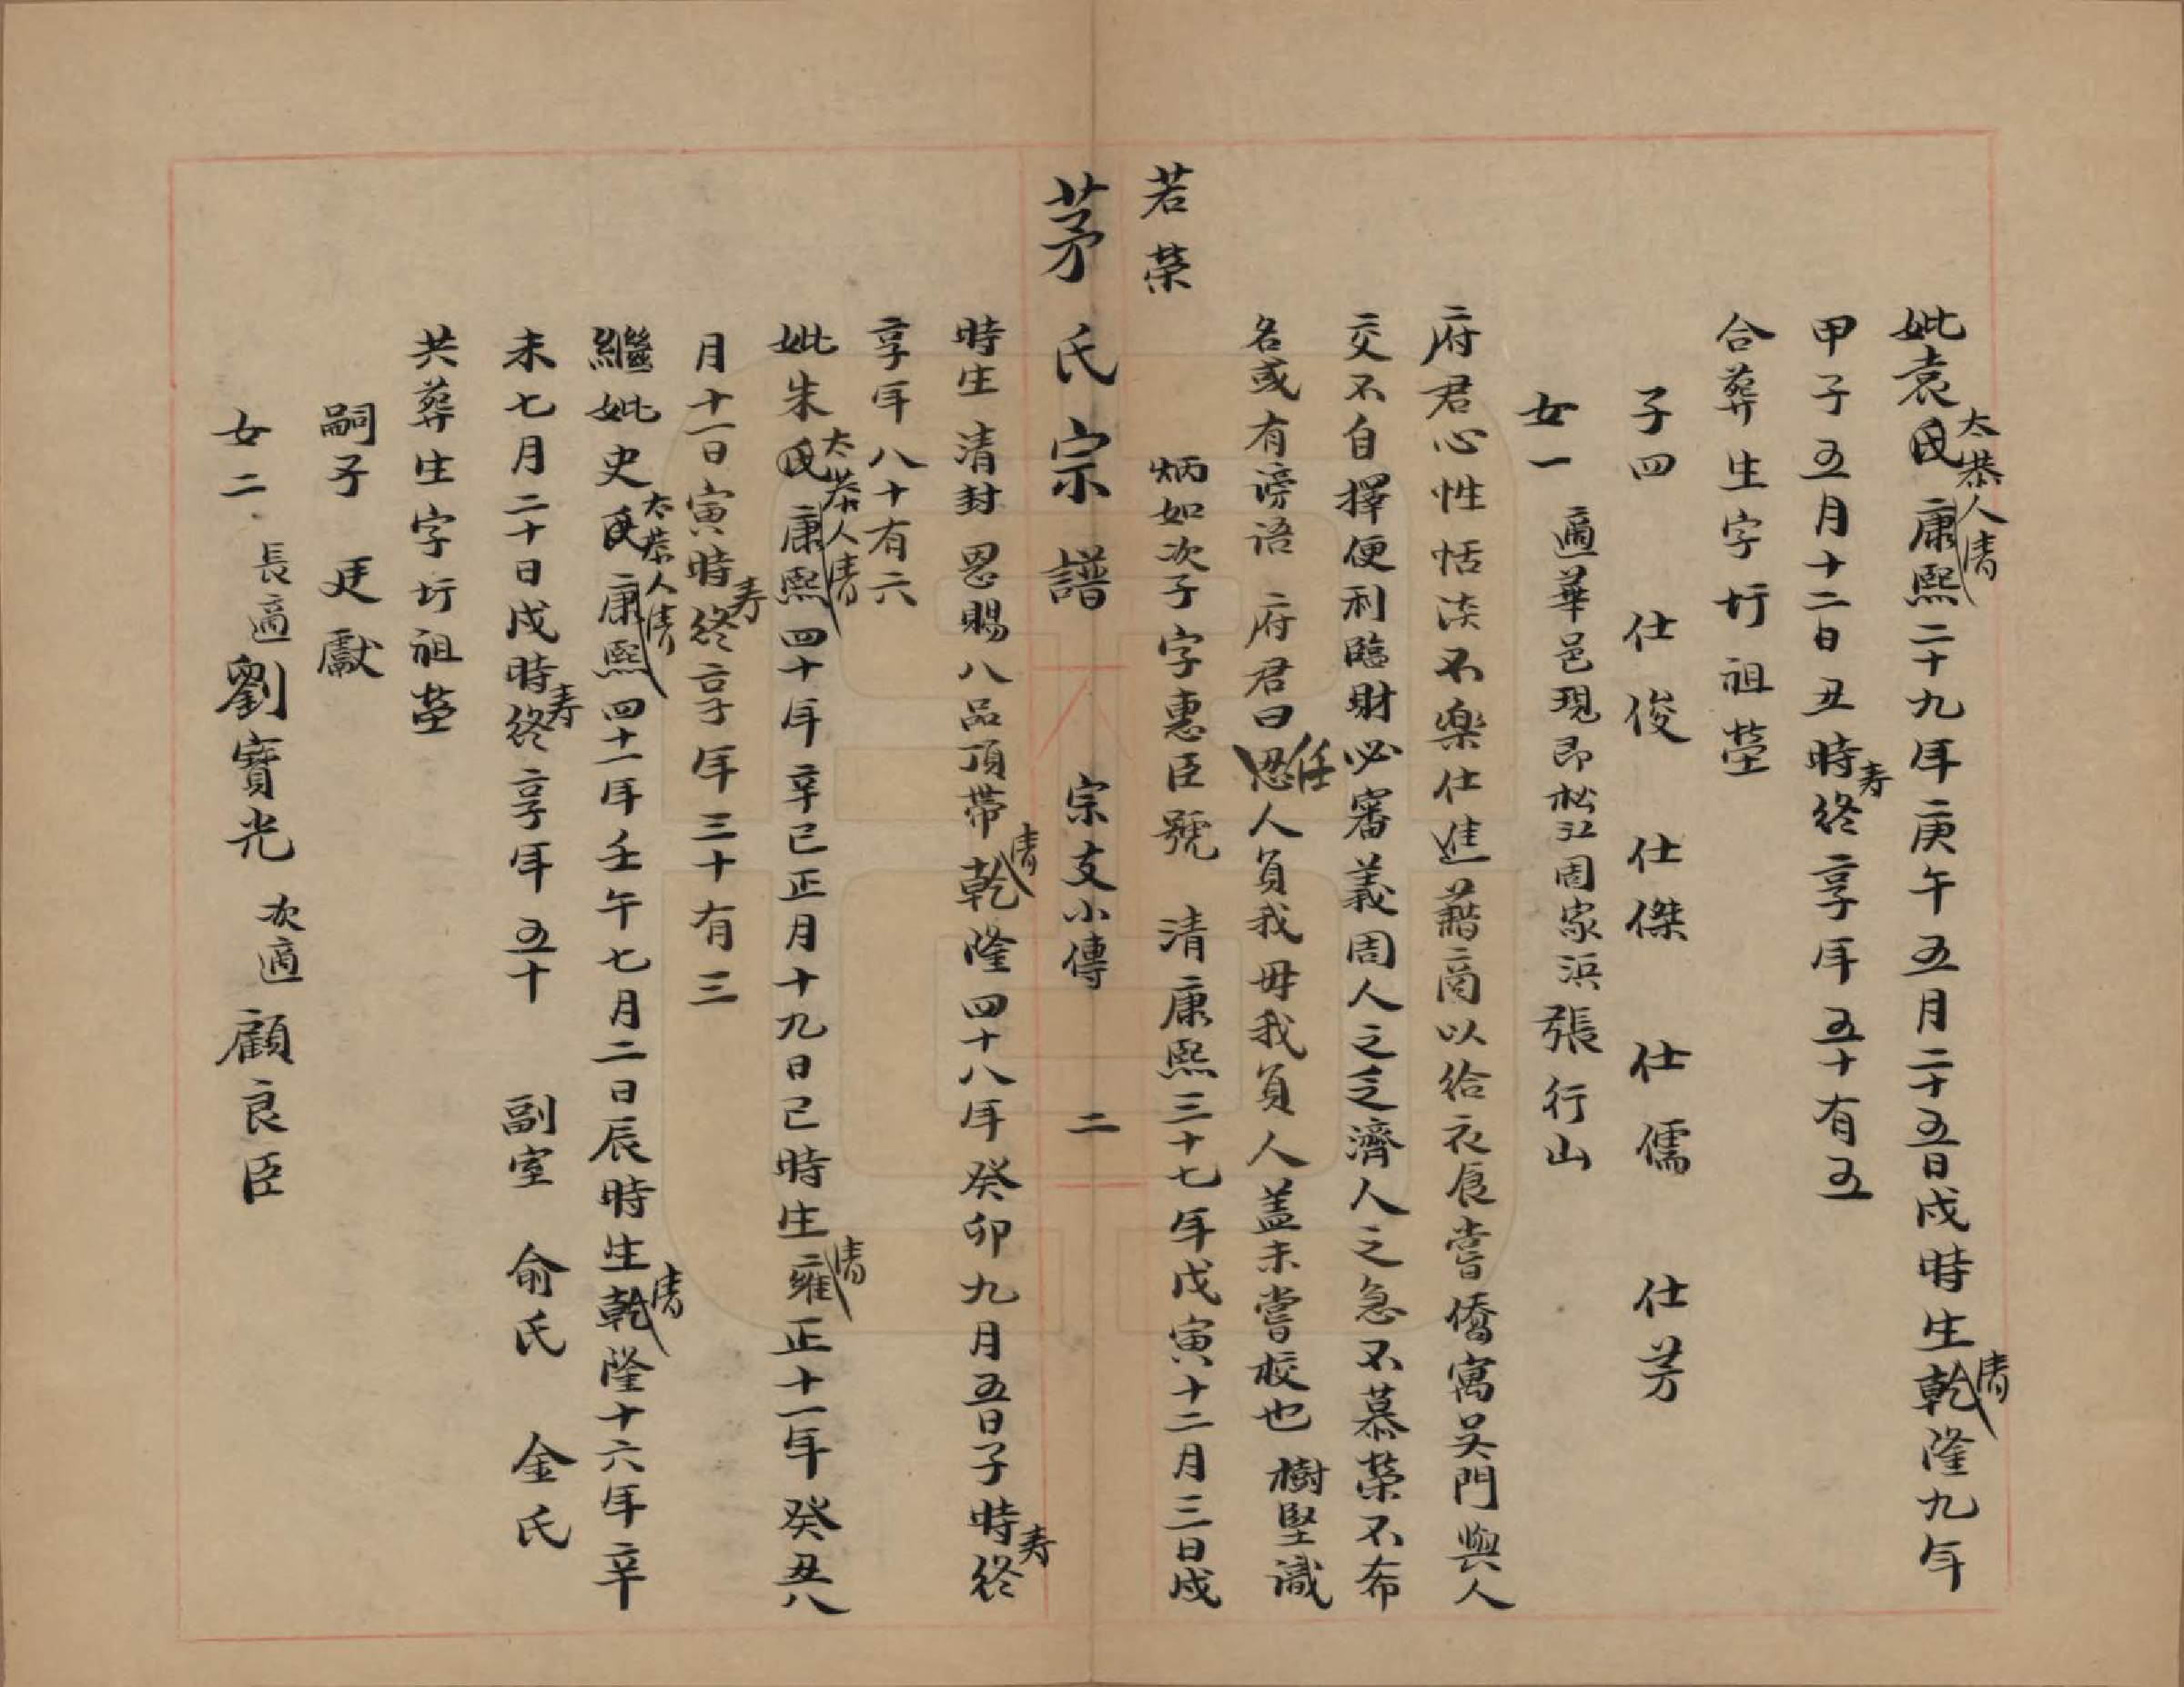 妣袁氏太恭人清康熙二十九年庚午五月二十五日戌時生清乾隆九年
甲子五月十二日丑時壽終享年五十有五
合葬生字圩祖塋
子四 仕俊 仕傑 仕儒 仕芳
女一 適華邑現即松江周家浜張行山
府君心性恬淡不樂仕進藉商以給衣食嘗僑寓吳門與人
交不自擇便利臨財必審義周人之乏濟人之急不慕榮不布
名或有謗語 府君曰任人負我毋我負人蓋未嘗校也 樹堅識
若榮 炳如次子字惠臣號 清康熙三十七年戊寅十二月三日戌
茅氏宗譜 宗支小傳 二
時生 清封 恩賜八品頂帶清乾隆四十八年癸卯九月五日子時壽終
享年八十有六
妣朱氏太恭人清康熙四十年辛巳正月十九日巳時生清雍正十一年癸丑八
月十一日寅時壽終享年三十有三
繼妣史氏太恭人清康熙四十一年壬午七月二日辰時生清乾隆十六年辛
未七月二十日戌時壽終享年五十 副室 俞氏 金氏
共葬生字圩祖塋
嗣子 廷獻
女二 長適劉寶光 次適顧良臣